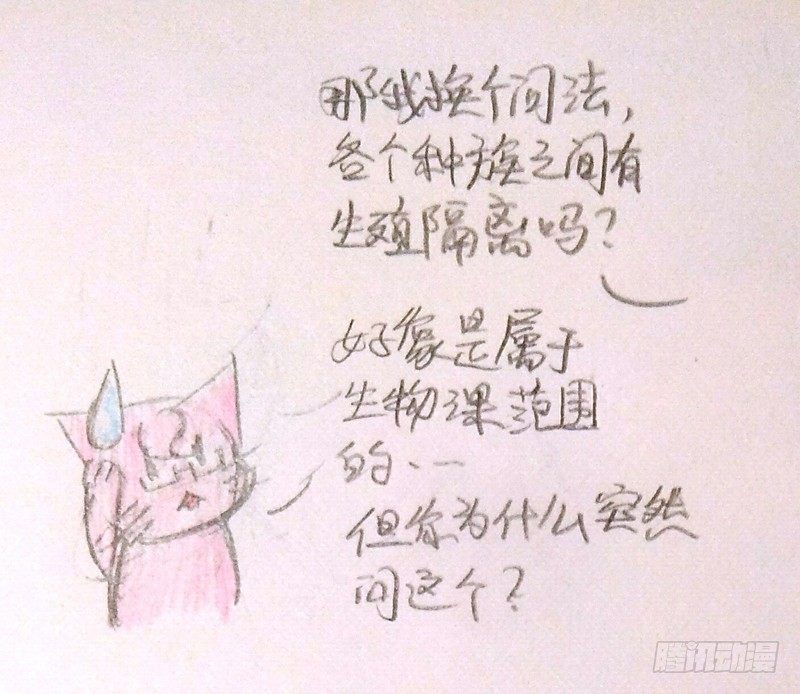 那我换个问法，
各个种族之间有
生殖隔离吗？
好像是属于
生物课范围
的．．一
但你为什么突然
问这个？
腾讯动漫